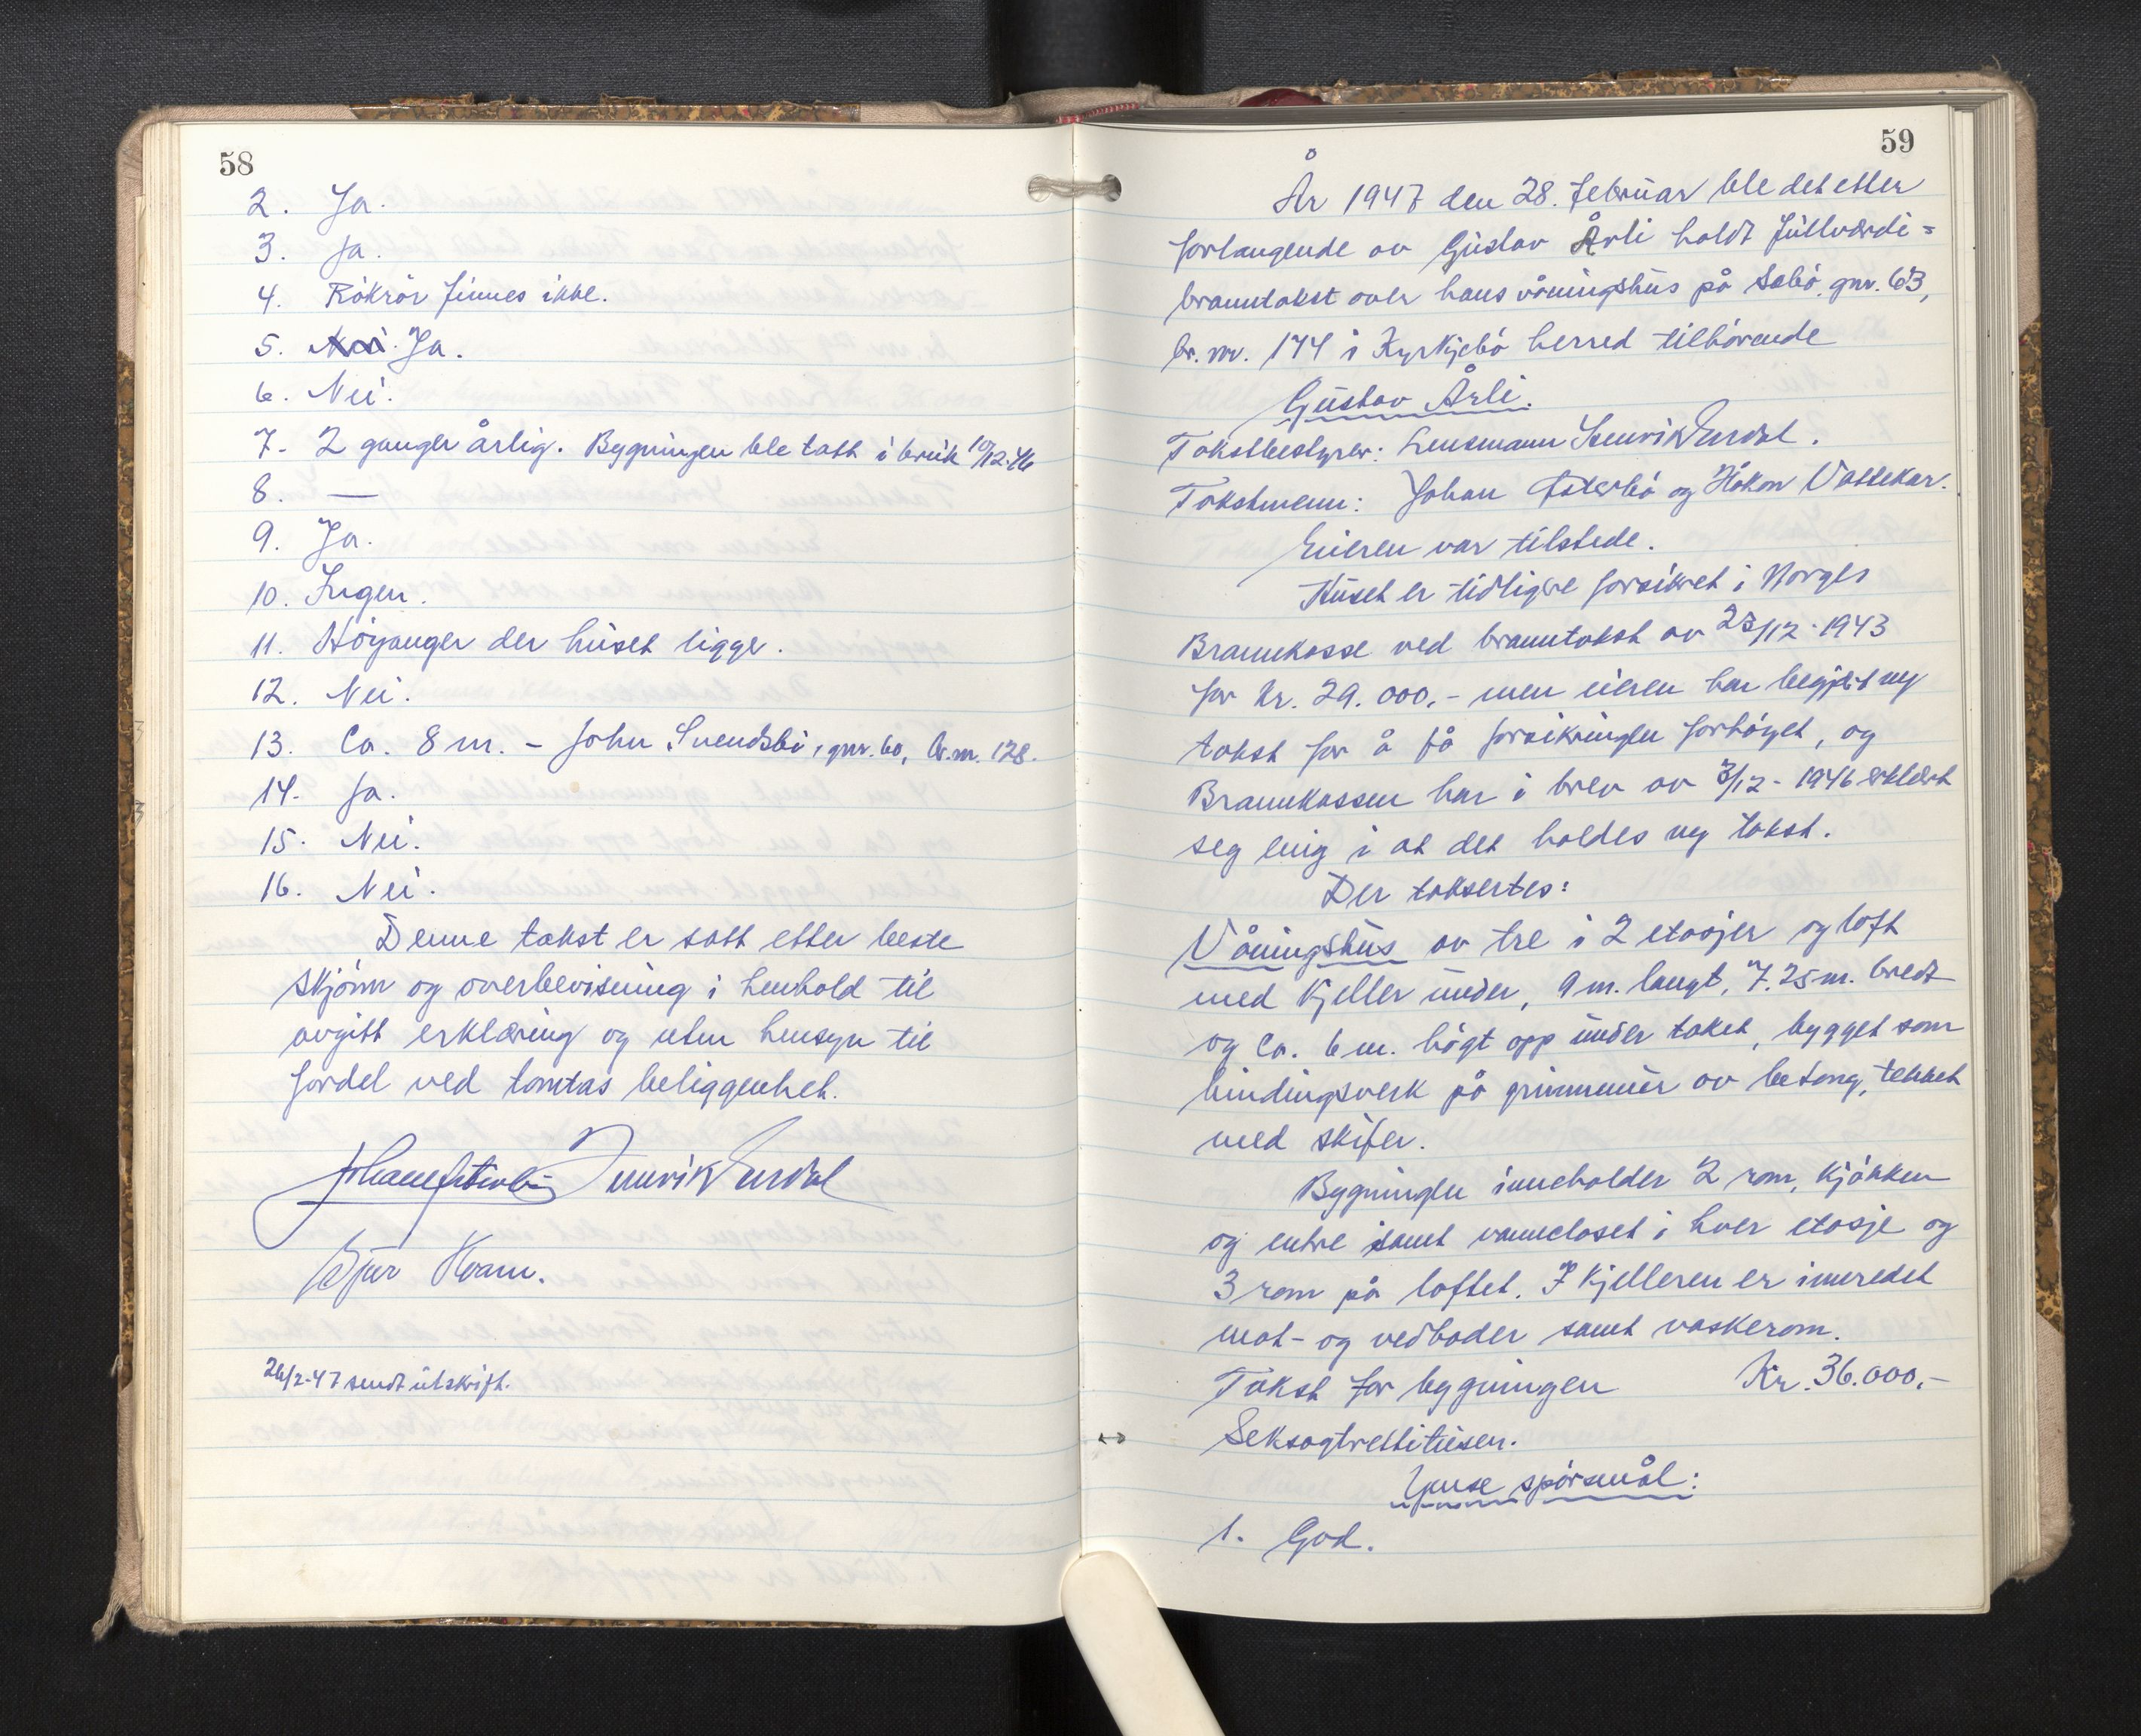 58
2. Ja.
3. Ja.
4. Rökrör finnes ikke.
5. Nei. Ja.
6. Nei.
7. 2 ganger årlig. Bygningen ble tatt i bruk 10/12-46
8. —
9. Ja.
10. Ingen.
11. Höyanger der huset ligger.
12. Nei.
13. Ca. 8 m. – John Svendsbö, gnr. 60, br.nr. 128.
14. Ja.
15. Nei.
16. Nei.
Denne takst er satt etter beste
skjönn og overbevisning i henhold til
avgitt erklæring og uten hensyn til
fordel ved tomtas beliggenhet.
Johan Österbö Henrik Eurdal
Sjur Kvam.
26/2-47 sendt utskrift.
59
År 1947 den 28. februar ble det etter
forlangende av Gustav Årli holdt fullverdi=
branntakst over hans våningshus på Sæbö, gnr. 63,
br. nr. 144 i Kyrkjebö herred tilhörende
Gustav Årli.
Takstbestyrer: Lensmann Henrik Eurdal.
Takstmenn: Johan Österbö og Håkon Vattekar.
Eieren var tilstede.
Huset er tidligere forsikret i Norges
Brannkasse ved branntakst av 23/12-1943
for kr. 29.000.- men eieren har begjært ny
takst for å få forsikringen forhöyet, og
Brannkassen har i brev av 3/12-1946 erklært
seg enig i at det holdes ny takst.
Der taksertes:
Våningshus av tre i 2 etasjer og loft
med kjeller under, 9 m. langt, 7.25 m. bredt
og ca. 6 m. högt opp under taket, bygget som
bindingsverk på grunnmur av betong, tekket
med skifer.
Bygningen inneholder 2 rom, kjökken
og entre samt vanncloset i hver etasje og
3 rom på loftet. I kjelleren er innredet
mat- og vedboder samt vaskerom.
Takst for bygningen Kr. 36.000.-
Seksogtrettitusen.
Ymse spörsmål:
1. God.